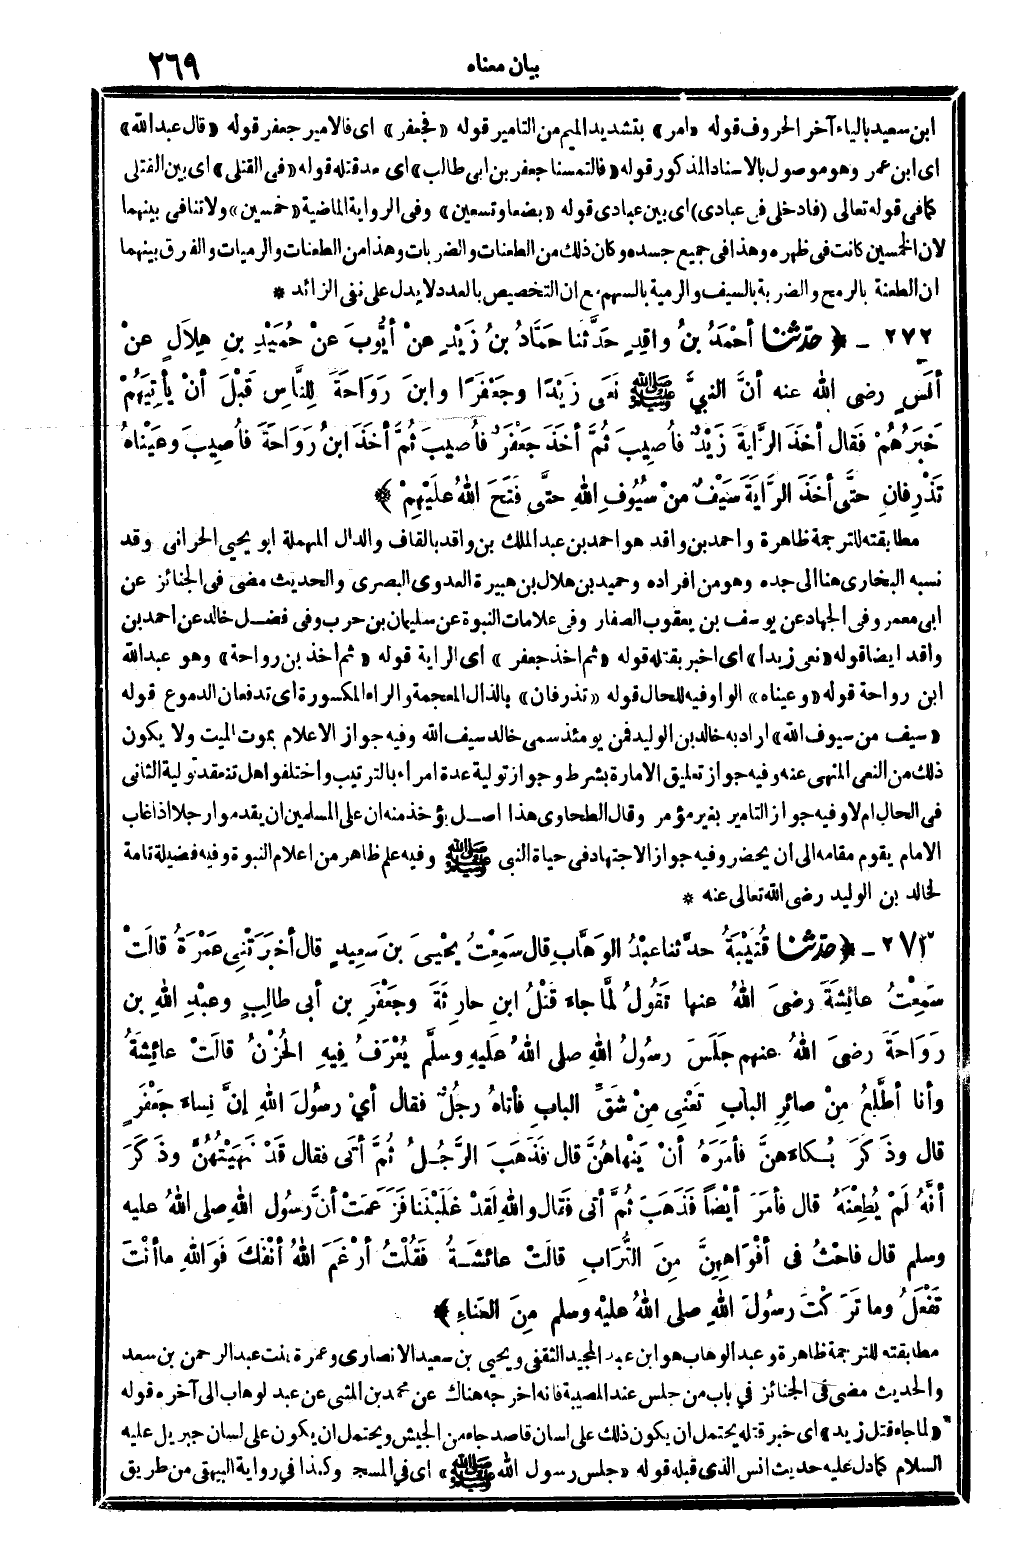 بيان معناه
٢٦٩
ابن سعيد بالياء آخر الحروف قوله «امر» بتشديد الميم من التامير قوله «فجعفر» اى فالامير جعفر قوله «قال عبد الله»
اى ابن عمر وهو موصول بالاسناد المذكور قوله «فالتمسنا جعفر بن ابى طالب» اى بعد قتله قوله «فى القتلى» اى بين القتلى
كما فى قوله تعالى (فادخلى فى عبادى) اى بين عبادى قوله «بضعا وتسعين» وفى الرواية الماضية «خمسين» ولا تنافى بينهما
لان الخمسين كانت فى ظهره وهذا فى جميع جسده وكان ذلك من الطعنات والضربات وهذا من الطعنات والرميات والفرق بينهما
ان الطعنة بالرمح والضربة بالسيف والرمية بالسهم مع ان التخصيص بالعدد لا يدل على نفى الزائد *
٢٧٢ ـ ﴿ حدّثنا أَحْمَدُ بنُ واقِدٍ حَدَّثنا حَمَّادُ بنُ زَيْدٍ عنْ أيُّوبَ عنْ حُمَيْدِ بنِ هِلَالٍ عنْ
أنَسٍ رضى الله عنه أنَّ النبيَّ ﷺ نَعَى زَيْدًا وجَعْفَرًا وابنَ رَوَاحَةَ لِلنَّاسِ قَبْلَ أنْ يأْتِيَهُمْ
خَبَرُهُمْ فَقال أخَذَ الرَّايةَ زَيْدٌ فأُصِيبَ ثُمَّ أخَذَ جَعْفَرٌ فأُصِيبَ ثُمَّ أخَذَ ابنُ رَوَاحَةَ فأُصِيبَ وعَيْناهُ
تَذْرِفانِ حتَّى أخَذَ الرَّايَةَ سَيْفٌ مِنْ سُيُوفِ اللهِ حتَّى فَتَحَ اللهُ عَلَيْهِمْ ﴾
مطابقته للترجمة ظاهرة واحمد بن واقد هو احمد بن عبد الملك بن واقد بالقاف والدال المهملة ابو يحيى الحرانى وقد
نسبه البخارى هنا الى جده وهو من افراده وحميد بن هلال بن هبيرة العدوى البصرى والحديث مضى فى الجنائز عن
ابى معمر وفى الجهاد عن يوسف بن يعقوب الصفار وفى علامات النبوة عن سليمان بن حرب وفى فضل خالد عن احمد بن
واقد ايضا قوله «نعى زيدا» اى اخبر بقتله قوله «ثم اخذ جعفر» اى الراية قوله «ثم اخذ بن رواحة» وهو عبد الله
ابن رواحة قوله «وعيناه» الواو فيه للحال قوله «تذرفان» بالذال المعجمة والراء المكسورة اى تدفعان الدموع قوله
«سيف من سيوف الله» اراد به خالد بن الوليد فمن يومئذ سمى خالد سيف الله وفيه جواز الاعلام بموت الميت ولا يكون
ذلك من النعى المنهى عنه وفيه جواز تعليق الامارة بشرط وجواز تولية عدة امراء بالترتيب واختلفوا هل تنعقد تولية الثانى
فى الحال ام لا وفيه جواز التامير بغير مؤمر وقال الطحاوى هذا اصل يؤخذ منه ان على المسلمين ان يقدموا رجلا اذا غاب
الامام يقوم مقامه الى أن يحضر وفيه جواز الاجتهاد فى حياة النبى ﷺ وفيه علم ظاهر من اعلام النبوة وفيه فضيلة تامة
لخالد بن الوليد رضى الله تعالى عنه *
٢٧٣ ـ ﴿ حدّثنا قُتَيْبَةُ حدَّثنا عبْدُ الوَهَّابِ قال سَمِعْتُ يَحْيىَ بنَ سَعِيدٍ قال أخبَرَتْنِى عَمْرَةُ قالَتْ
سَمِعْتُ عائِشَةَ رضىَ اللهُ عنها تَقُولُ لمَّا جاءَ قَتْلُ ابنِ حارِثَةَ وجَعْفَرِ بنِ أبى طالِبٍ وعبْدِ اللهِ بنِ
رَوَاحَةَ رضىَ اللهُ عنهم جَلَسَ رسُولُ اللهِ صلى اللهُ عَليهِ وسلَّم يُعْرَفُ فِيهِ الحُزْنُ قالَتْ عائِشَةُ
وأنا أطَّلِعُ مِنْ صائِرِ البابِ تَعْنِى مِنْ شَقِّ البابِ فأتاهُ رجُلٌ فقال أىْ رسولَ اللهِ إنَّ نِساءَ جَعْفَرٍ
قال وذَكَرَ بُكاءَهنَّ فأمَرَهُ أنْ يَنْهاهُنَّ قال فَذَهَبَ الرَّجُلُ ثُمَّ أتَى فقال قَدْ نَهَيْتُهُنَّ وذَكَرَ
أنَّهُ لَمْ يُطِعْنَهُ قال فأمَرَ أيْضاً فَذَهَبَ ثُمَّ أتَى فقال واللهِ لقدْ غَلَبْنَنا فَزَعَمَتْ أنَّ رسُولَ اللهِ صلى اللهُ عليه
وسلم قال فاحْثُ فى أفْوَاهِهِنَّ مِنَ التُّرَابِ قالَتْ عائشَةُ فَقُلْتُ أرْغَمَ اللهُ أنْفَكَ فَوَاللهِ ما أنْتَ
تَفْعَلُ وما تَرَكْتَ رسُولَ اللهِ صلى اللهُ عليْهِ وسلم مِنَ العَناءِ ﴾
مطابقته للترجمة ظاهرة وعبد الوهاب هو ابن عبد المجيد الثقفى ويحيى بن سعيد الانصارى وعمرة بنت عبد الرحمن بن سعد
والحديث مضى فى الجنائز في باب من جلس عند المصيبة فانه اخرجه هناك عن محمد بن المثنى عن عبد لوهاب الى آخره قوله
«لما جاء قتل زيد» اى خبر قتله يحتمل ان يكون ذلك على لسان قاصد جاء من الجيش ويحتمل ان يكون على لسان جبريل عليه
السلام كما دل عليه حديث انس الذى قبله قوله «جلس رسول الله ﷺ» اى في المسجد وكذا في رواية البيهقى من طريق